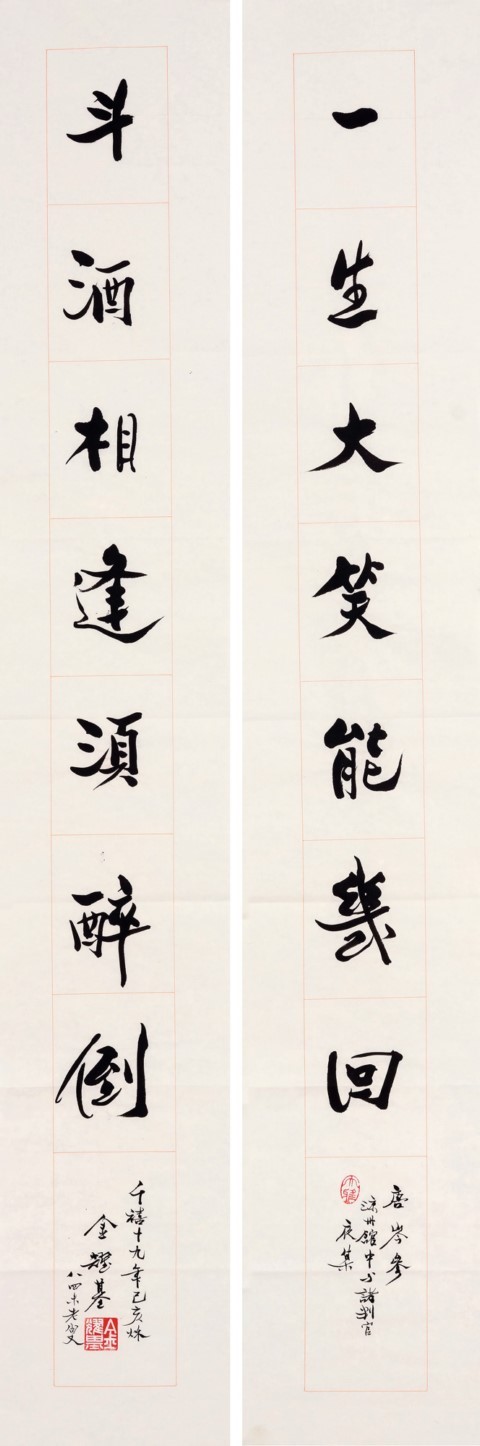 一生大笑能幾回
唐岑參
涼州館中與諸判官
夜集
斗酒相逢須醉倒
千禧十九年己亥秋
金耀基
八四未老叟